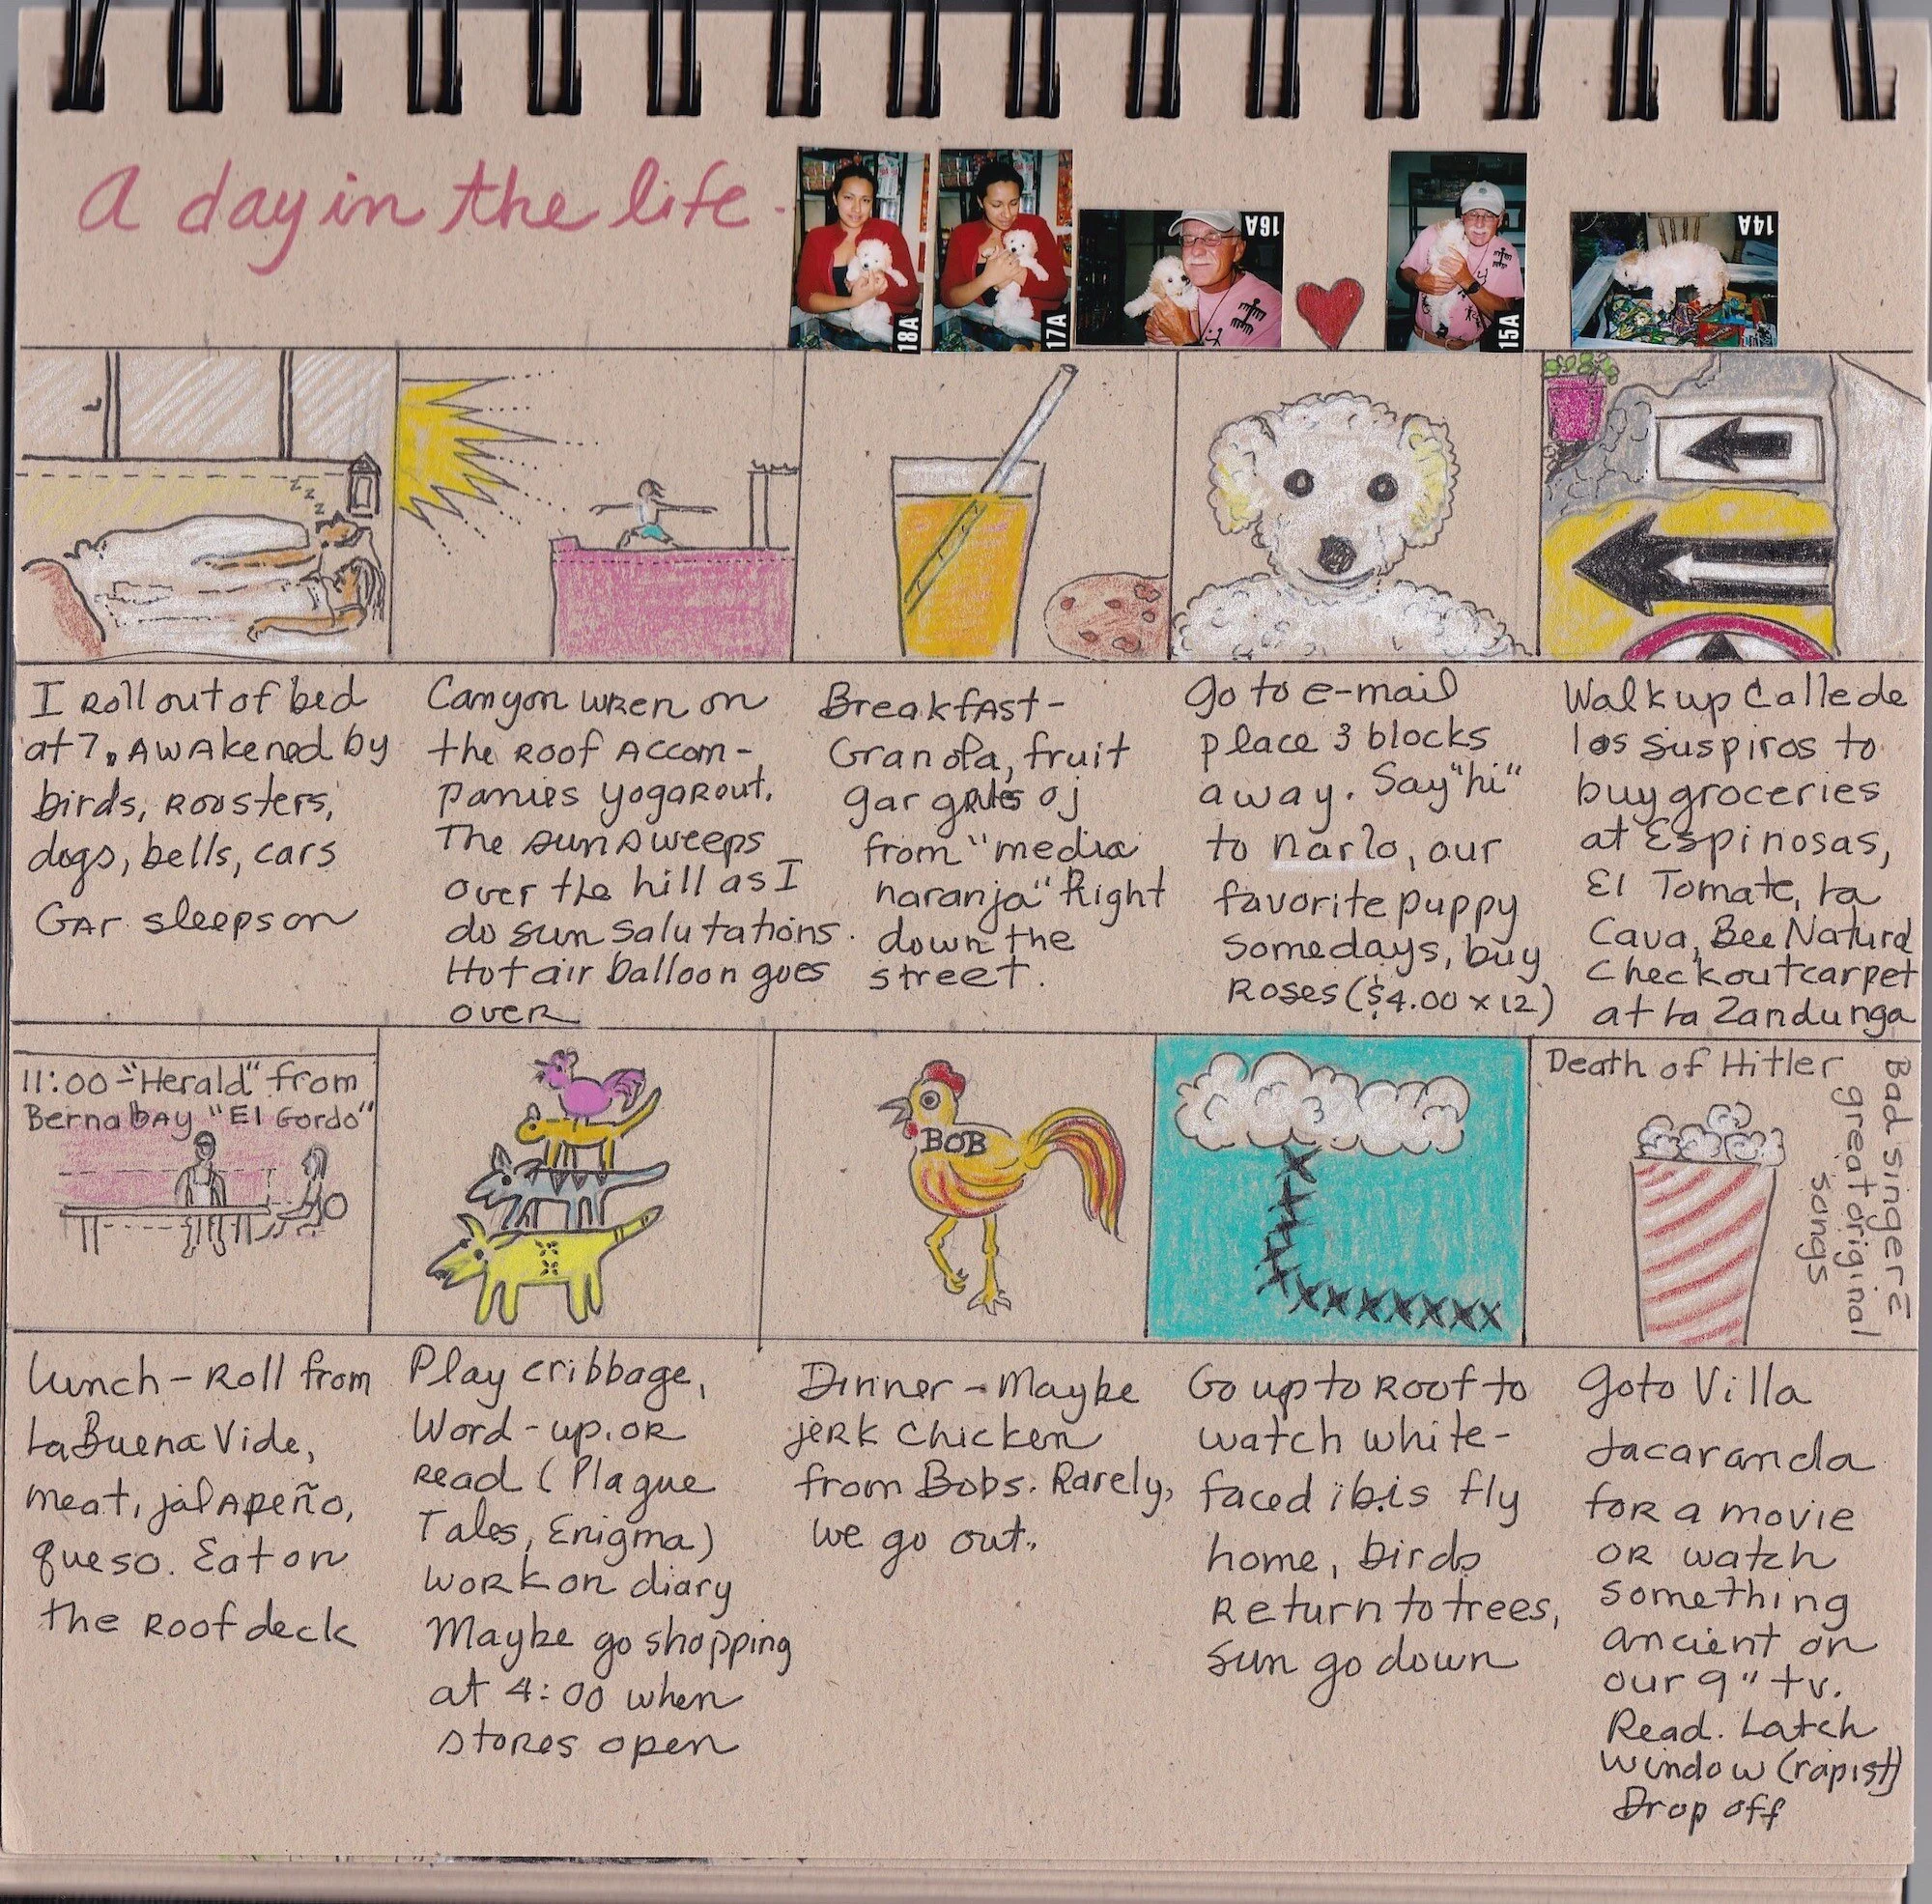 A day in the life -
18A
17A
16A
15A
14A
I Roll out of bed
at 7. Awakened by
birds, Roosters,
dogs, bells, cars
Gar sleeps on
Canyon wren on
the Roof Accom-
panies yogarout.
The sun sweeps
over the hill as I
do sun salutations.
Hot air balloon goes
over
Breakfast-
Granola, fruit
gar gets oj
from "media
naranja" Right
down the
street.
Go to e-mail
place 3 blocks
away. Say "hi"
to narlo, our
favorite puppy
some days, buy
Roses ($4.00 x 12)
Walk up Calle de
los Suspiros to
buy groceries
at Espinosas,
El Tomate, La
Cava, Bee Natural
Check out carpet
at La Zandunga
11:00 - "Herald" from
Bernabay "El Gordo"
BOB
Death of Hitler
Bad singer =
great original
songs
Lunch - Roll from
La Buena Vide,
meat, jalapeño,
queso. Eat on
the Roof deck
Play cribbage,
Word-up, or
Read (Plague
Tales, Enigma)
work on diary
Maybe go shopping
at 4:00 when
stores open
Dinner - Maybe
jerk chicken
from Bobs. Rarely,
we go out.
Go up to Roof to
watch white-
faced ibis fly
home, birds
Return to trees,
sun go down
Go to Villa
Jacaranda
for a movie
or watch
something
ancient on
our 9" tv.
Read. Latch
window (rapist)
Drop off